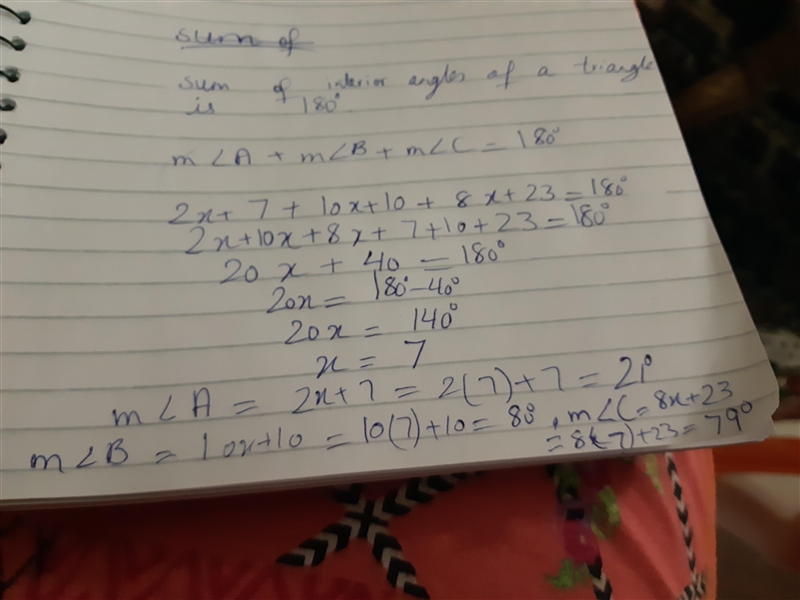 sum of
sum of interior angles of a triangle
is 180°
m∠A + m∠B + m∠C = 180°
2x+ 7 + 10x+10 + 8x+23 = 180°
2x+10x+8x+ 7+10+23 = 180°
20 x + 40 = 180°
20x = 180°-40°
20x = 140°
x = 7
m∠A = 2x+7 = 2(7)+7 = 21°
m∠B = 10x+10 = 10(7)+10 = 80° , m∠C = 8x+23
= 8(7)+23 = 79°